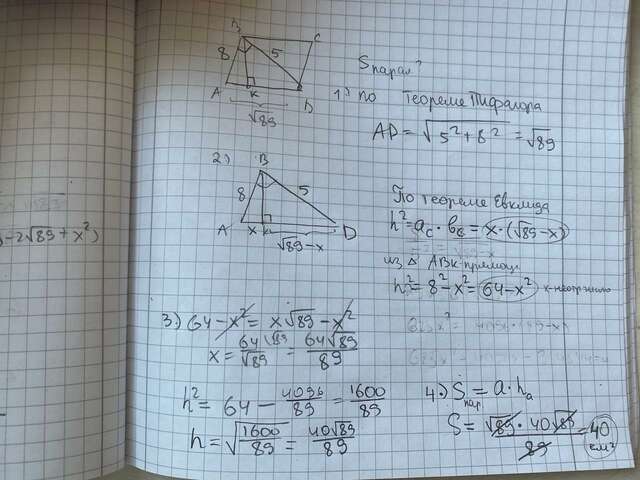 B C
8 5
A K D
√89
Sпарал?
1) по теореме Пифагора
AD = √5² + 8² = √89
2) B
8 5
A x K D
√89 - x
По теореме Евклида
h² = a_c · b_c = x · (√89 - x)
из △ ABK-прямоуг.
h² = 8² - x² = 64 - x²
- 2√89 + x²)
3) 64 - x² = x√89 - x²
x = 64/√89 √89 = 64√89/89
h² = 64 - 4096/89 = 1600/89
h = √1600/89 = 40√89/89
4.) Sпар. = a · h_a
S = √89 · 40√89/89 = 40 см²